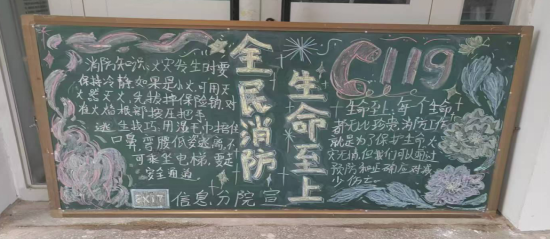 消防知识:火灾发生时要
保持冷静,如果是小火,可用灭
火器灭火,先拔掉保险销,对
着火焰根部按压把手。
逃生技巧:用湿毛巾捂住
口鼻,弯腰低姿逃离,不
可乘坐电梯,要走
安全通道
EXIT
全民消防
生命至上
信息分院宣
119
生命至上,每个生命
都无比珍贵,消防工作
就是为了保护生命,火
灾无情,但我们可以通过
预防和正确应对减
少伤亡。